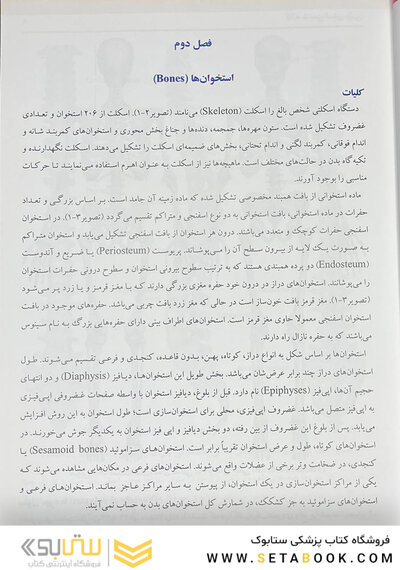 فصل دوم
استخوان‌ها (Bones)
کلیات
دستگاه اسکلتی شخص بالغ را اسکلت (Skeleton) می‌نامند (تصویر۲-۱). اسکلت از ۲۰۶ استخوان و تعدادی
غضروف تشکیل شده است. ستون مهره‌ها، جمجمه، دنده‌ها و جناغ بخش محوری و استخوان‌های کمربند شانه و
اندام فوقانی، کمربند لگنی و اندام تحتانی، بخش‌های ضمیمه‌ای اسکلت را تشکیل می‌دهند. اسکلت نگهدارنده و
تکیه‌گاه بدن در حالت‌های مختلف است. ماهیچه‌ها نیز از اسکلت به عنوان اهرم استفاده می‌نمایند تا حرکات
مناسبی را بوجود آورند.
ماده استخوانی از بافت همبند مخصوصی تشکیل شده که ماده زمینه آن جامد است. بر اساس بزرگی و تعداد
حفرات در ماده استخوانی، بافت استخوانی به دو نوع اسفنجی و متراکم تقسیم می‌گردد (تصویر۳-۱). در استخوان
اسفنجی حفرات کوچک و متعدد می‌باشند. درون هر استخوان از بافت اسفنجی تشکیل می‌یابد و استخوان متراکم
به صورت یک لایه از بیرون سطح آن را می‌پوشاند. پریوست (Periosteum) یا ضریع و آندوست
(Endosteum) دو پرده همبندی هستند که به ترتیب سطوح بیرونی استخوان و سطوح درونی حفرات استخوان
را می‌پوشانند. استخوان‌های دراز در درون خود حفره مغزی بزرگی دارند که با مغز قرمز و یا زرد پر می‌شود
(تصویر۳-۱). مغز قرمز بافت خون‌ساز است در حالی که مغز زرد بافت چربی می‌باشد. حفره‌های موجود در بافت
استخوان اسفنجی معمولا حاوی مغز قرمز است. استخوان‌های اطراف بینی دارای حفره‌هایی بزرگ به نام سینوس
می‌باشند که به حفره نازال راه دارند.
استخوان‌ها بر اساس شکل به انواع دراز، کوتاه، پهن، بدون قاعده، کنجدی و فرعی تقسیم می‌شوند. طول
استخوان‌های دراز چند برابر عرض‌شان می‌باشد. بخش طویل این استخوان‌ها، دیافیز (Diaphysis) و دو انتهای
حجیم آن‌ها، اپی‌فیز (Epiphyses) نام دارد. قبل از بلوغ، دیافیز استخوان با واسطه صفحات غضروفی اپی‌فیزی
به اپی فیز متصل می‌باشد. غضروف اپی‌فیزی، محلی برای استخوان‌سازی است؛ طول استخوان به این روش افزایش
می‌یابد. پس از بلوغ این غضروف از بین رفته، دو بخش دیافیز و اپی فیز استخوان به یکدیگر جوش می‌خورند. در
استخوان‌های کوتاه، طول و عرض استخوان تقریباً برابر است. استخوان‌های سزاموئید (Sesamoid bones) یا
کنجدی، در ضخامت وتر برخی از عضلات واقع می‌شوند. استخوان‌های فرعی در مکان‌هایی مشاهده می‌شوند که
یکی از مراکز استخوان‌سازی در یک استخوان، از پیوستن به سایر مراکز عاجز بماند. استخوان‌های فرعی و
استخوان‌های سزاموئید به جز کشکک، در شمارش کل استخوان‌های بدن به حساب نمی‌آیند.
فروشگاه کتاب پزشکی ستابوک
WWW.SETABOOK.COM
ستابوک
فروشگاه اینترنتی کتاب